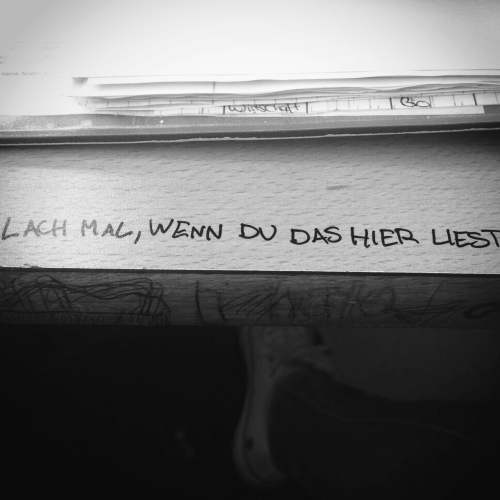 Wirtschaft
Go
LACH MAL, WENN DU DAS HIER LIEST